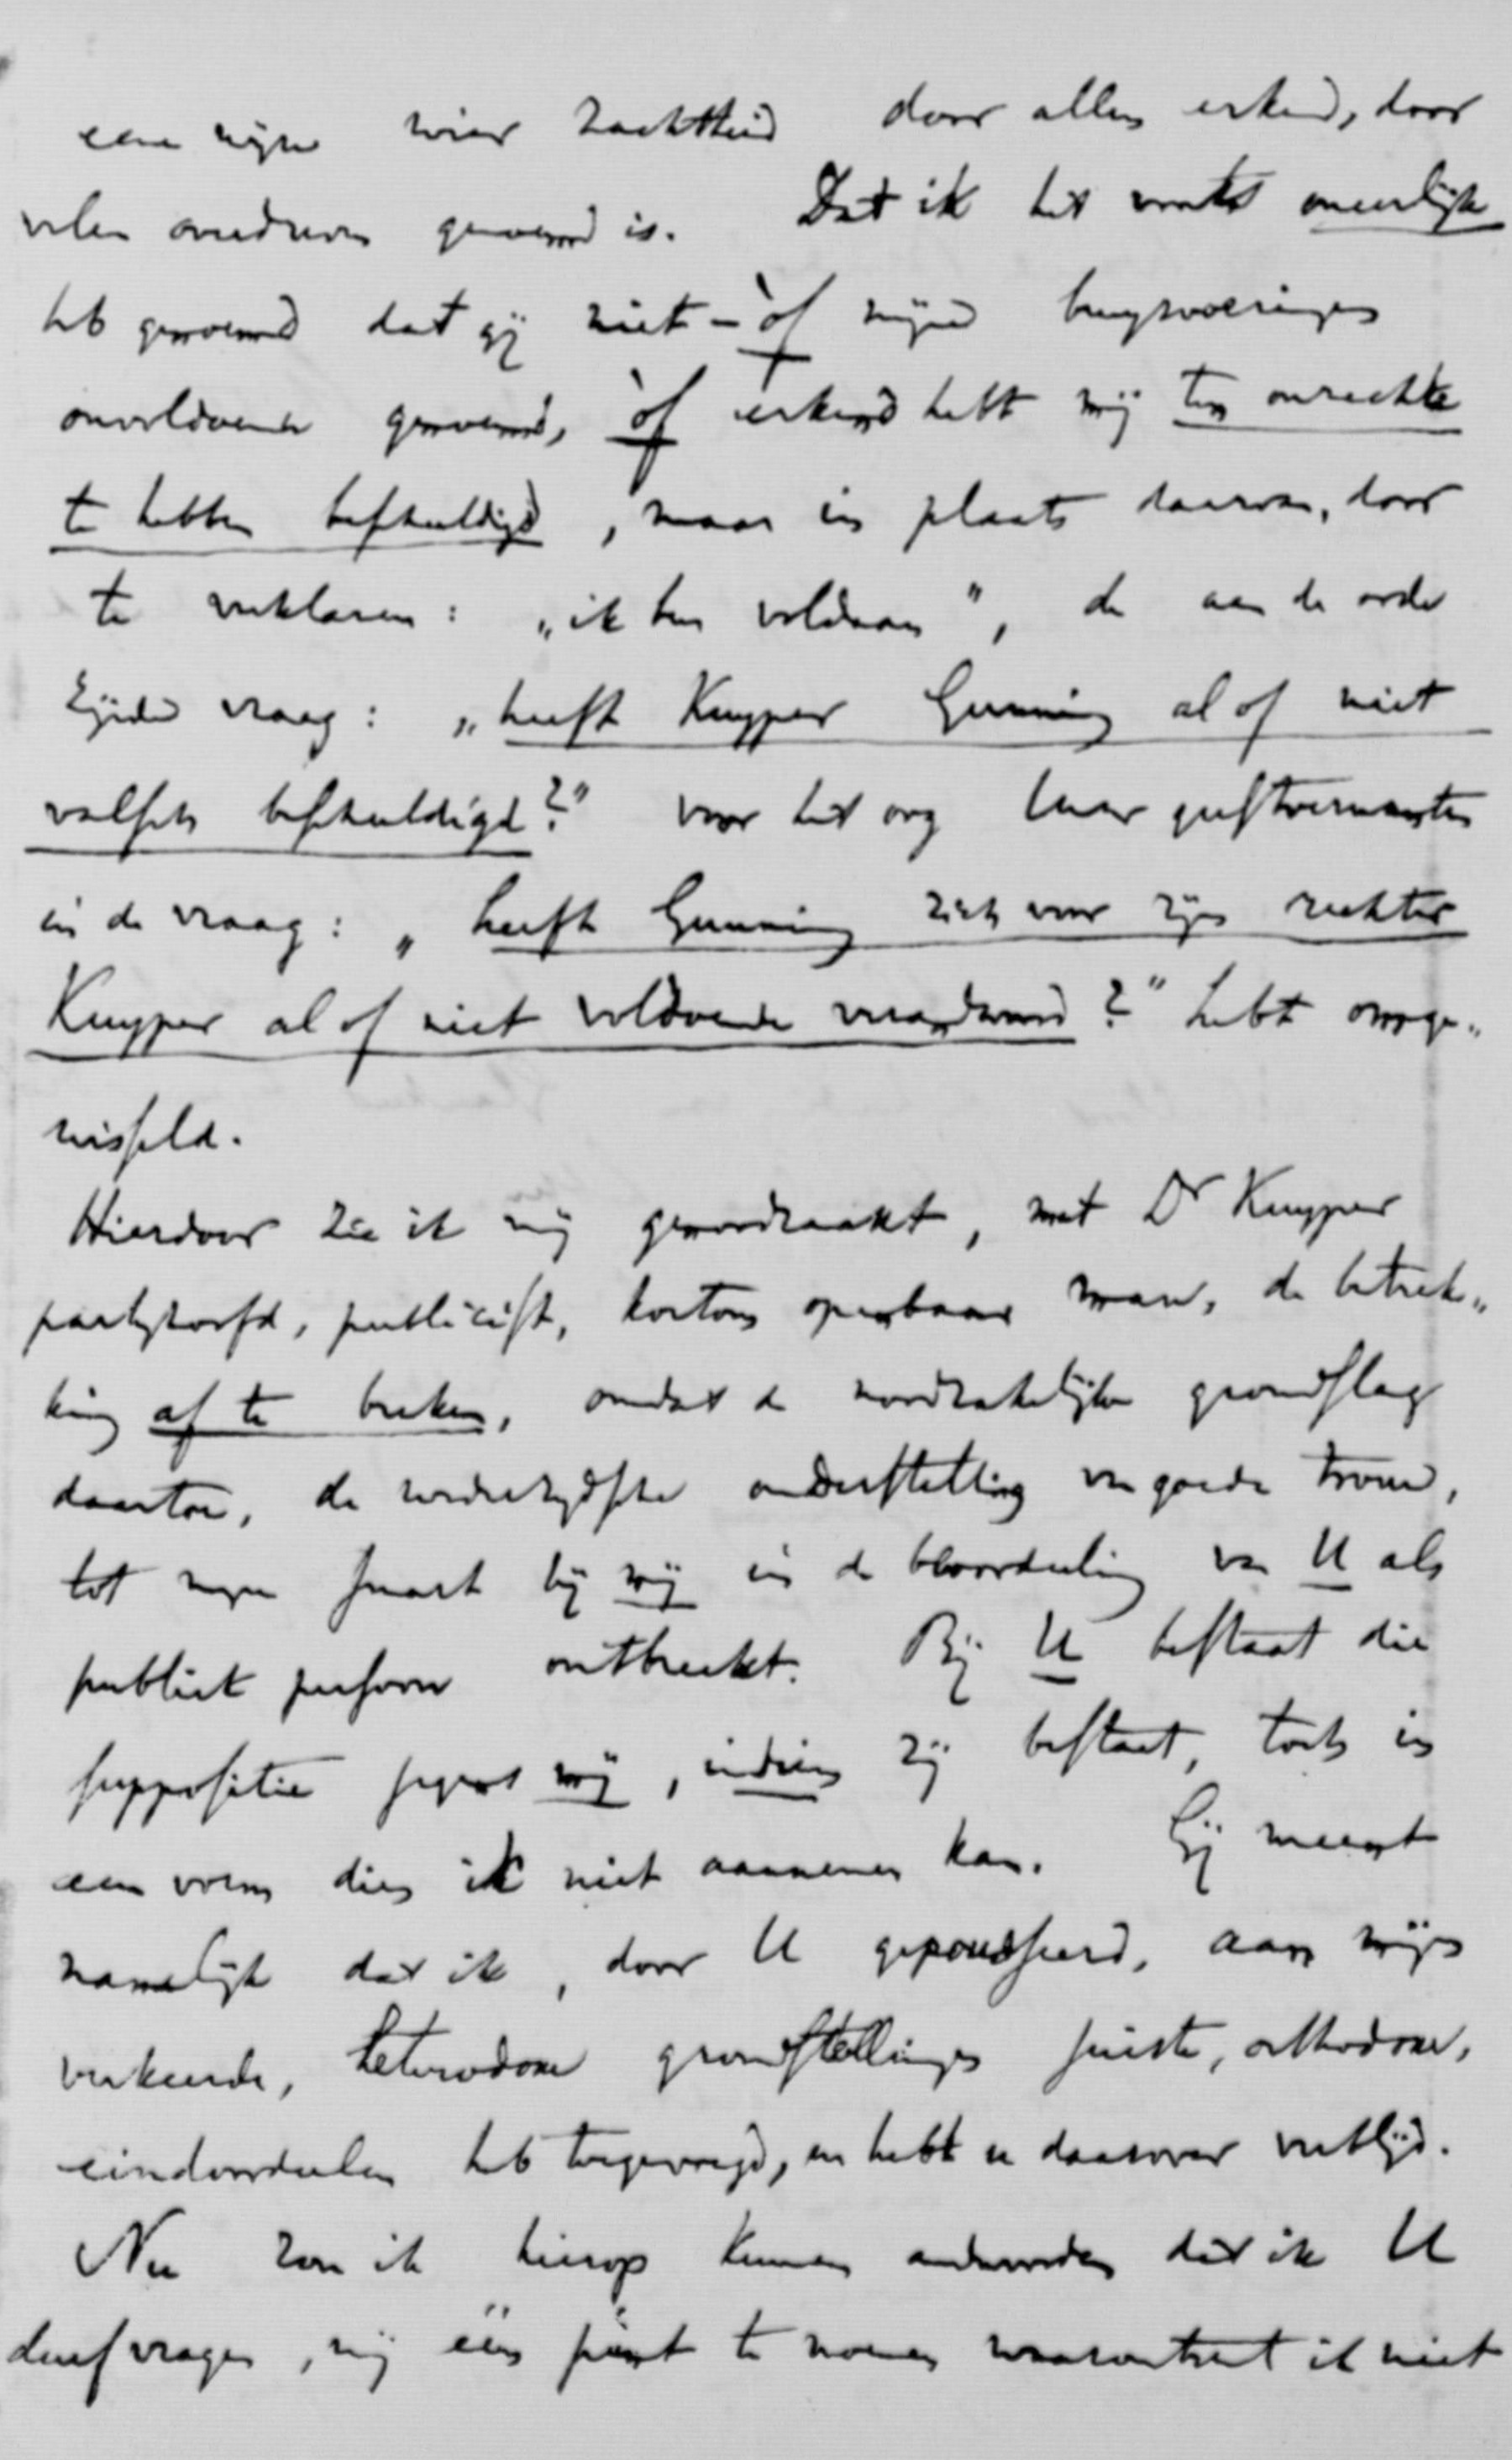 eene wijze wier zachtheid door allen erkend, door
velen overdreven genoemd is. Dat ik het voorts oneerlijk
heb genoemd dat gij niet – òf mijne bewijsvoeringen
onvoldoende genoemd, òf erkend hebt mij ten onrechte
te hebben beschuldigd, maar in plaats daarvan, door
te verklaren: „ik ben voldaan”, de aan de orde
zijnde vraag: „heeft Kuyper Gunning al of niet
valsch beschuldigd?” voor het oog Uwer geestverwanten
in de vraag: „heeft Gunning zich voor zijn rechter
Kuyper al of niet voldoende verantwoord?” hebt omge„
wisseld.
Hierdoor zie ik mij genoodzaakt, met Dr Kuyper
partijhoofd, publicist, kortom openbaar man, de betrek„
king af te breken, omdat de noodzakelijke grondslag
daartoe, de wederzijdsche onderstelling van goede trouw,
tot mijn smart bij mij in de beoordeeling van U als
publiek persoon ontbreekt. Bij U bestaat die
suppositie jegens mij, indien zij bestaat, toch in
een vorm dien ik niet aannemen kan. Gij meent
namelijk dat ik, door U gepousseerd, aan mijn
verkeerde, heterodoxe grondstellingen juiste, orthodoxe,
eindoordeelen heb toegevoegd, en hebt u daarover verblijd.
Nu zou ik hierop kunnen antwoorden dat ik U
durf vragen, mij één punt te noemen waaromtrent ik niet